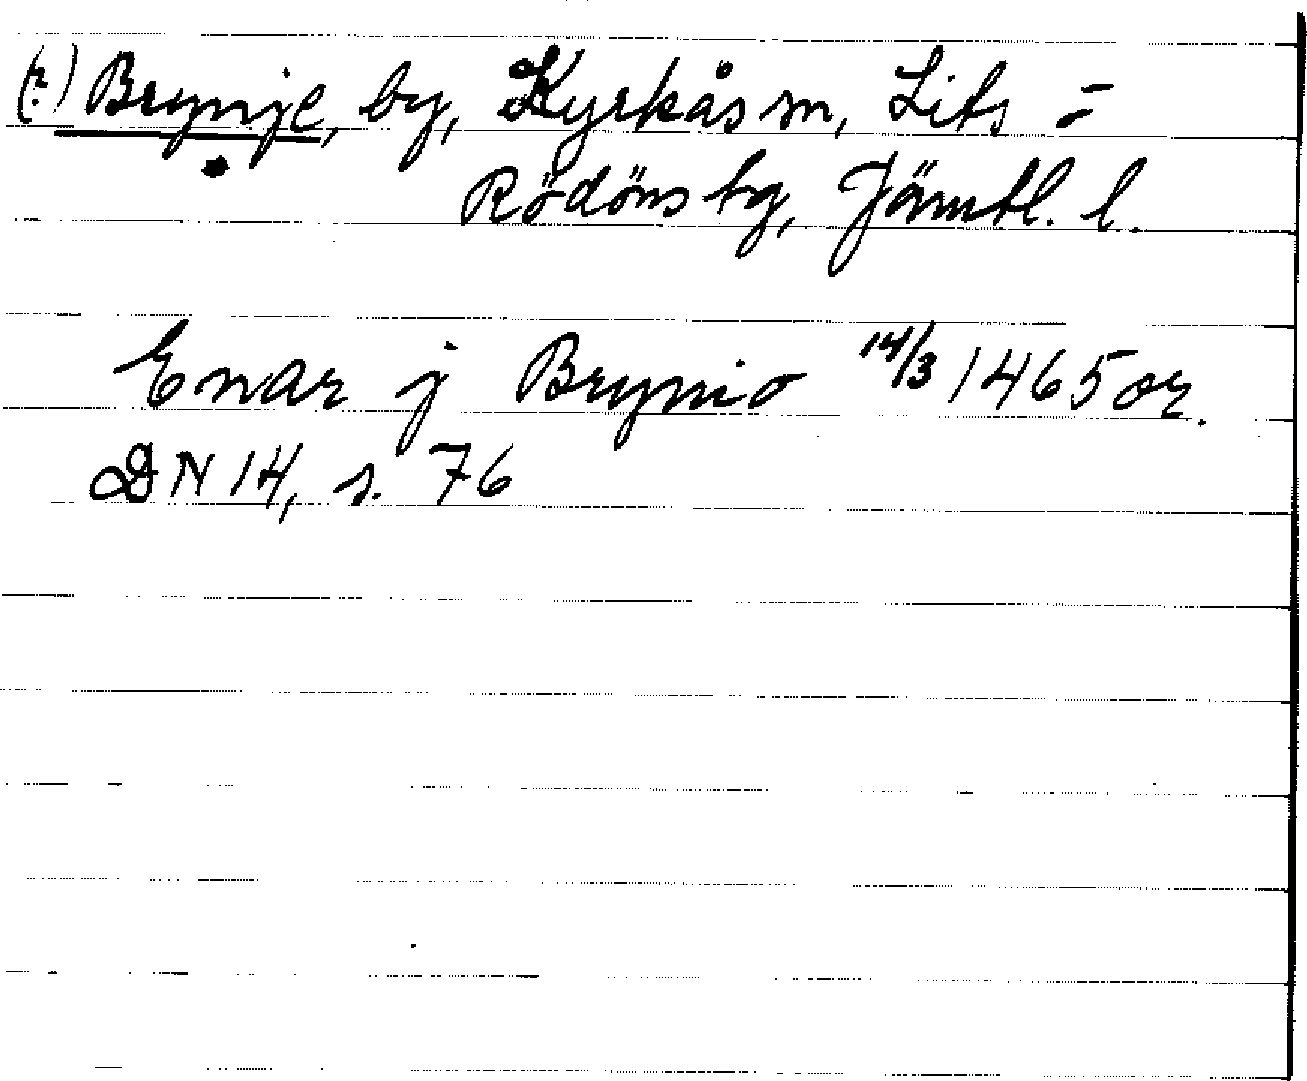 (?) Brynje, by, Kyrkås sn, Lits =
Rödöns tg, Jämtl. l.
Enar j Brynio 14/3 1465 or.
DN 14, s. 76